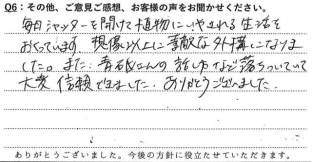 Q6：その他、ご意見ご感想、お客様の声をお聞かせください。
毎日シャッターを開けて植物にいやされる生活を
おくっています。想像以上に素敵な外構になりま
した。また、青石さんの話し方など落ちついていて
大変信頼できました。ありがとうございました。
ありがとうございました。今後の方針に役立たせていただきます。